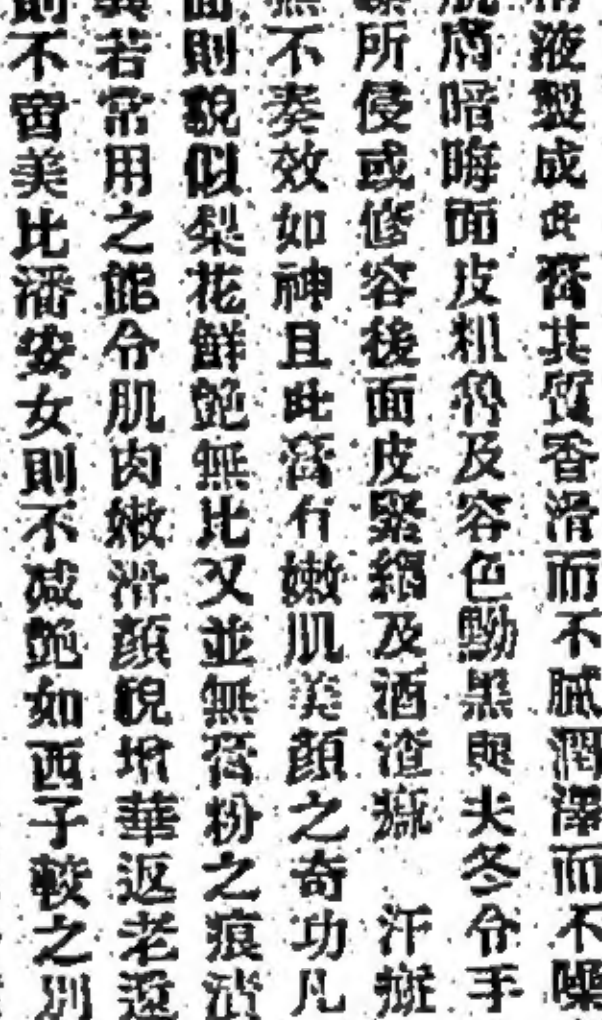 液製成此膏其質香滑而不膩潤澤而不噪
膚暗晦面皮粗魯及容色黝黑與夫冬令手
所侵或修容後面皮緊繃及酒渣 汗斑
不奏效如神且此膏有嫩肌美顏之奇功凡
則貌似梨花鮮艶無比又並無膏粉之痕
若常用之能令肌肉嫩滑顏貌增華返老還
不啻美比潘安女則不减艶如西子較之別